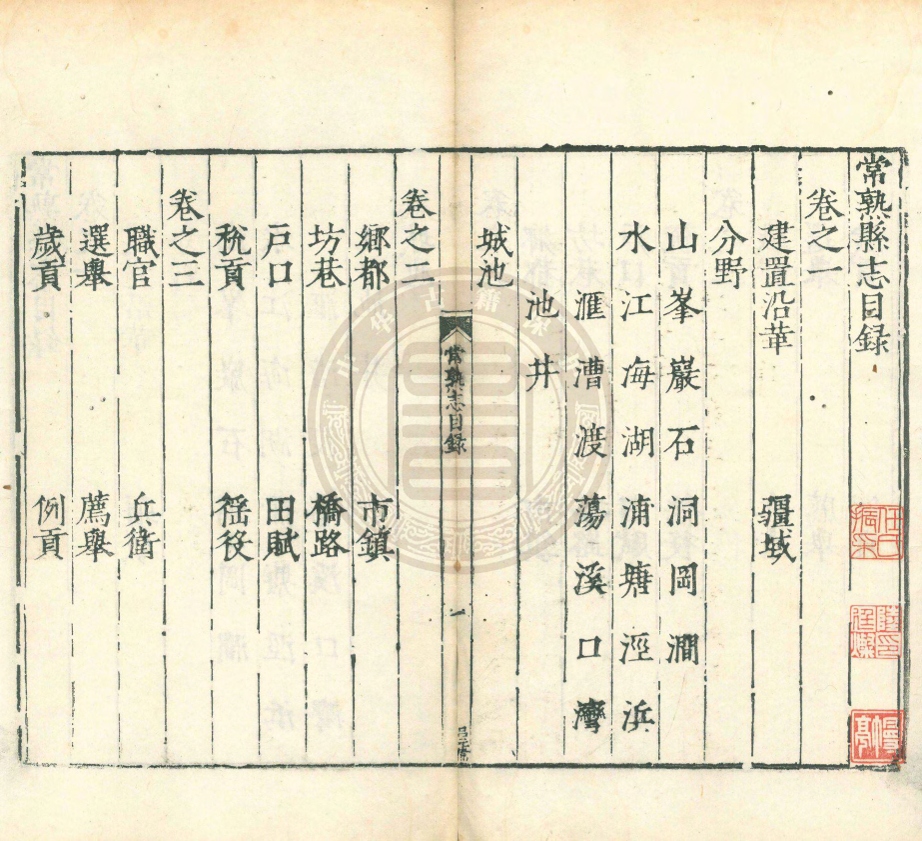 常熟縣志目録
卷之一
建置沿革 疆域
分野
山 峯 巖 石 洞 岡 澗
水 江 海 湖 浦 塘 涇 浜
滙 漕 渡 蕩 溪 口 灣
池 井
城池
常熟志目録
一
卷之二
鄉都 市鎮
坊巷 橋路
戸口 田賦
稅貢 徭役
卷之三
職官 兵衛
選舉 薦舉
歲貢 例貢